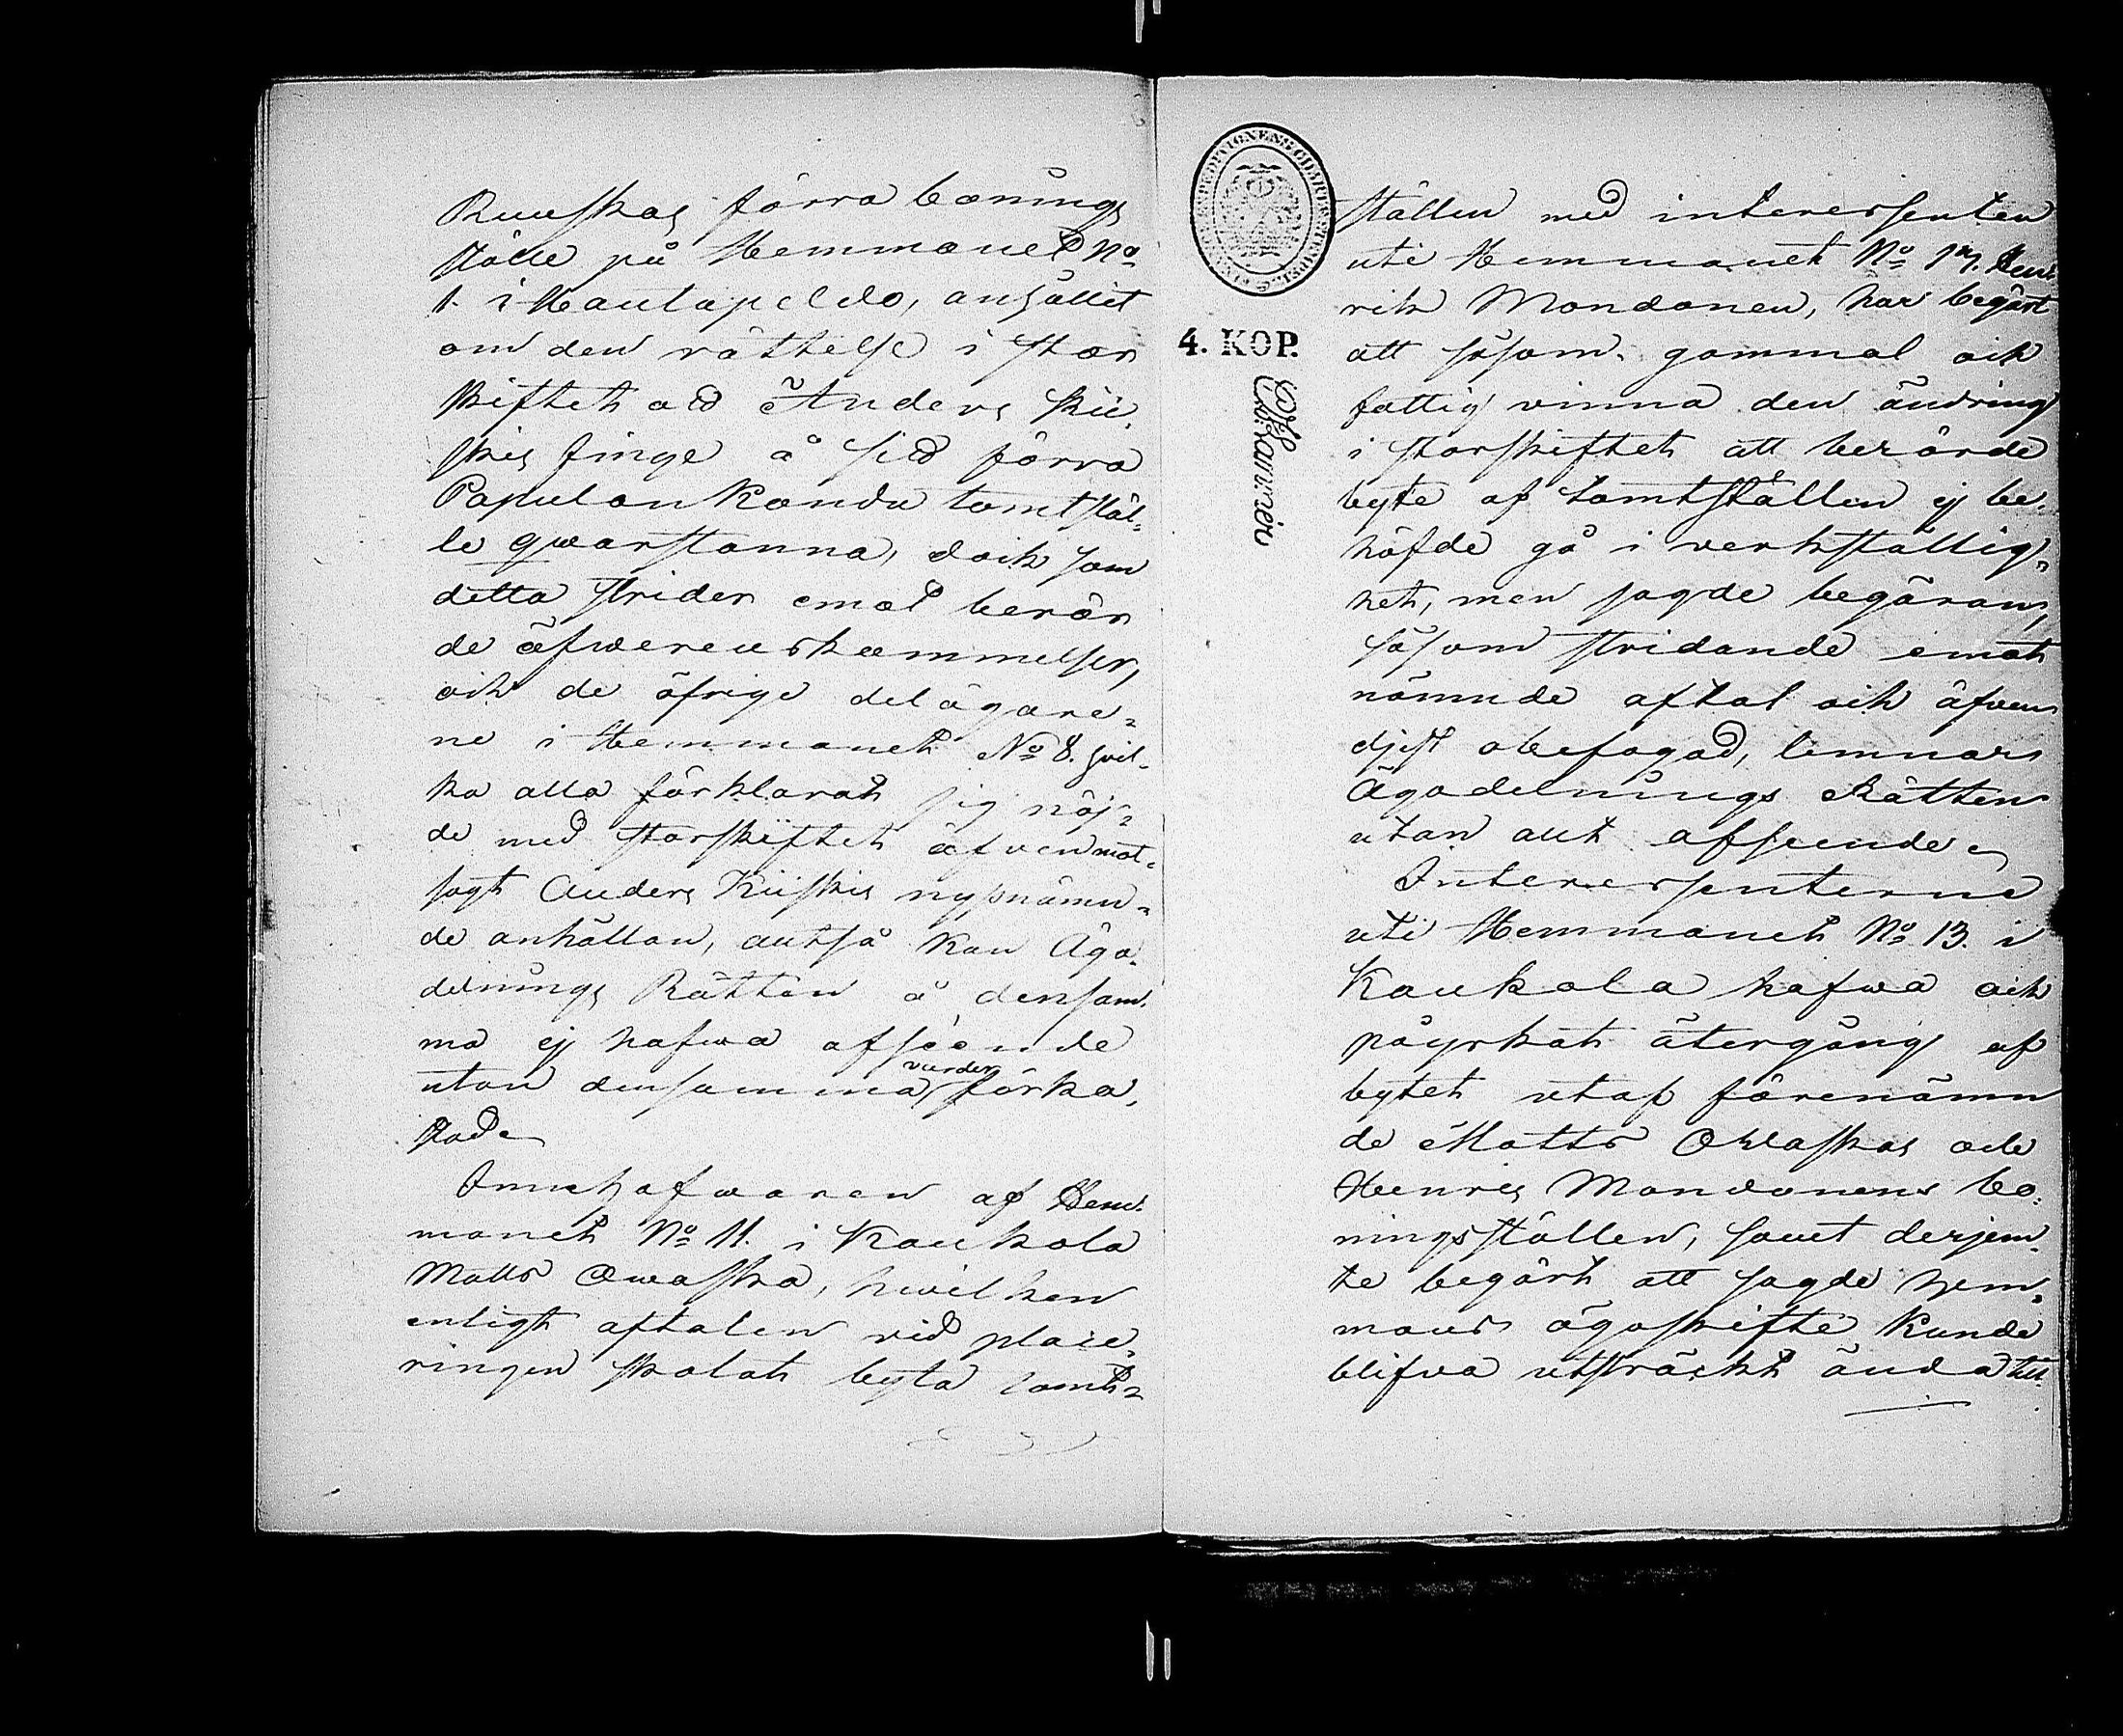 Ruuskas förra bonings
ställe på Hemmanet No
1. i Hautapeldo, anhållit
om den rättelse i stor
skiftet at Anders Kii-
skis finge å sid förra
Papulankondu tomtstäl-
le qwarstanna, dock som
detta strider emot berör
de öfwerenskommelser,
och de öfrige delägare-
ne i Hemmanet No 8. hvil-
ka alla förklarat sig nöj-
de med storskiftet äfven mot-
sagt Anders Kiiskis nyssnämn-
de anhållan, altså kan Ägo-
delnings Rätten å densam-
ma ej hafwa afseende
utan densamma varder förka-
stad.
Innehafwaren af Hem-
manet No 11. i Kaukola
Matts Owaska, hwilken
enligt aftalen vid place-
ringen skolat byta tomt-
4. KOP.
ställen med interessenten
uti Hemmanet No 17. Hen-
rik Mondonen, har begärt
att såsom gammal och
fattig vinna den ändring
i storskiftet att berörde
byte af tomtställen ej be-
höfde gå i verkställig-
het, men sagde begäran,
såsom stridande emot
nämnde aftal och äfven
djest obefogad, lemnar
Ägodelnings Rätten
utan allt afseende.
Interessenterne
uti Hemmanet No 13. i
Kaukola hafwa och
påyrkat återgång af
bytet utaf förenämn
de Matts Owaskas och
Henrics Mondonens bo-
ningsställen, samt derjem-
te begärt att sagde hem-
mans ägoskifte kunde
blifva utsträckt ända till